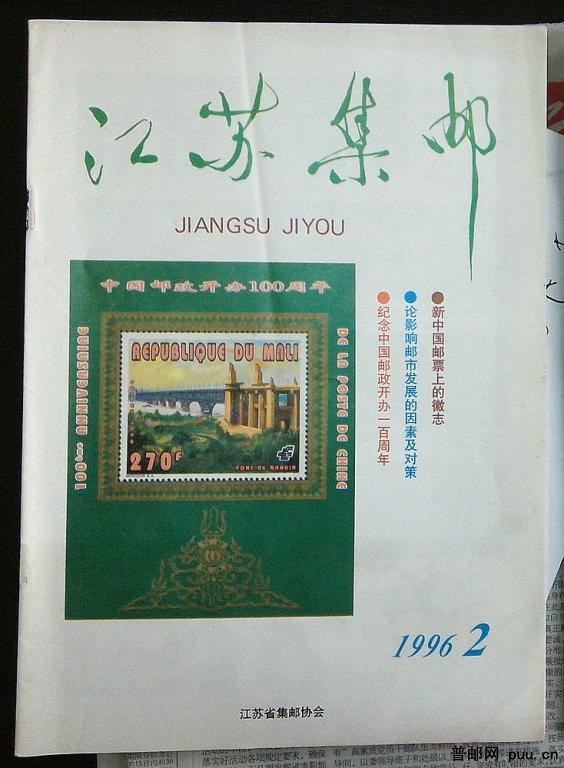 江苏集邮
JIANGSU JIYOU
中国邮政开办100周年
100ème ANNIVERSURIUE
DE LA POSTE DE CHINE
REPUBLIQUE DU MALI
270F
PONT DE NANKIN
新中国邮票上的徽志
论影响邮市发展的因素及对策
纪念中国邮政开办一百周年
1996 2
江苏省集邮协会
普邮网 puu.cn